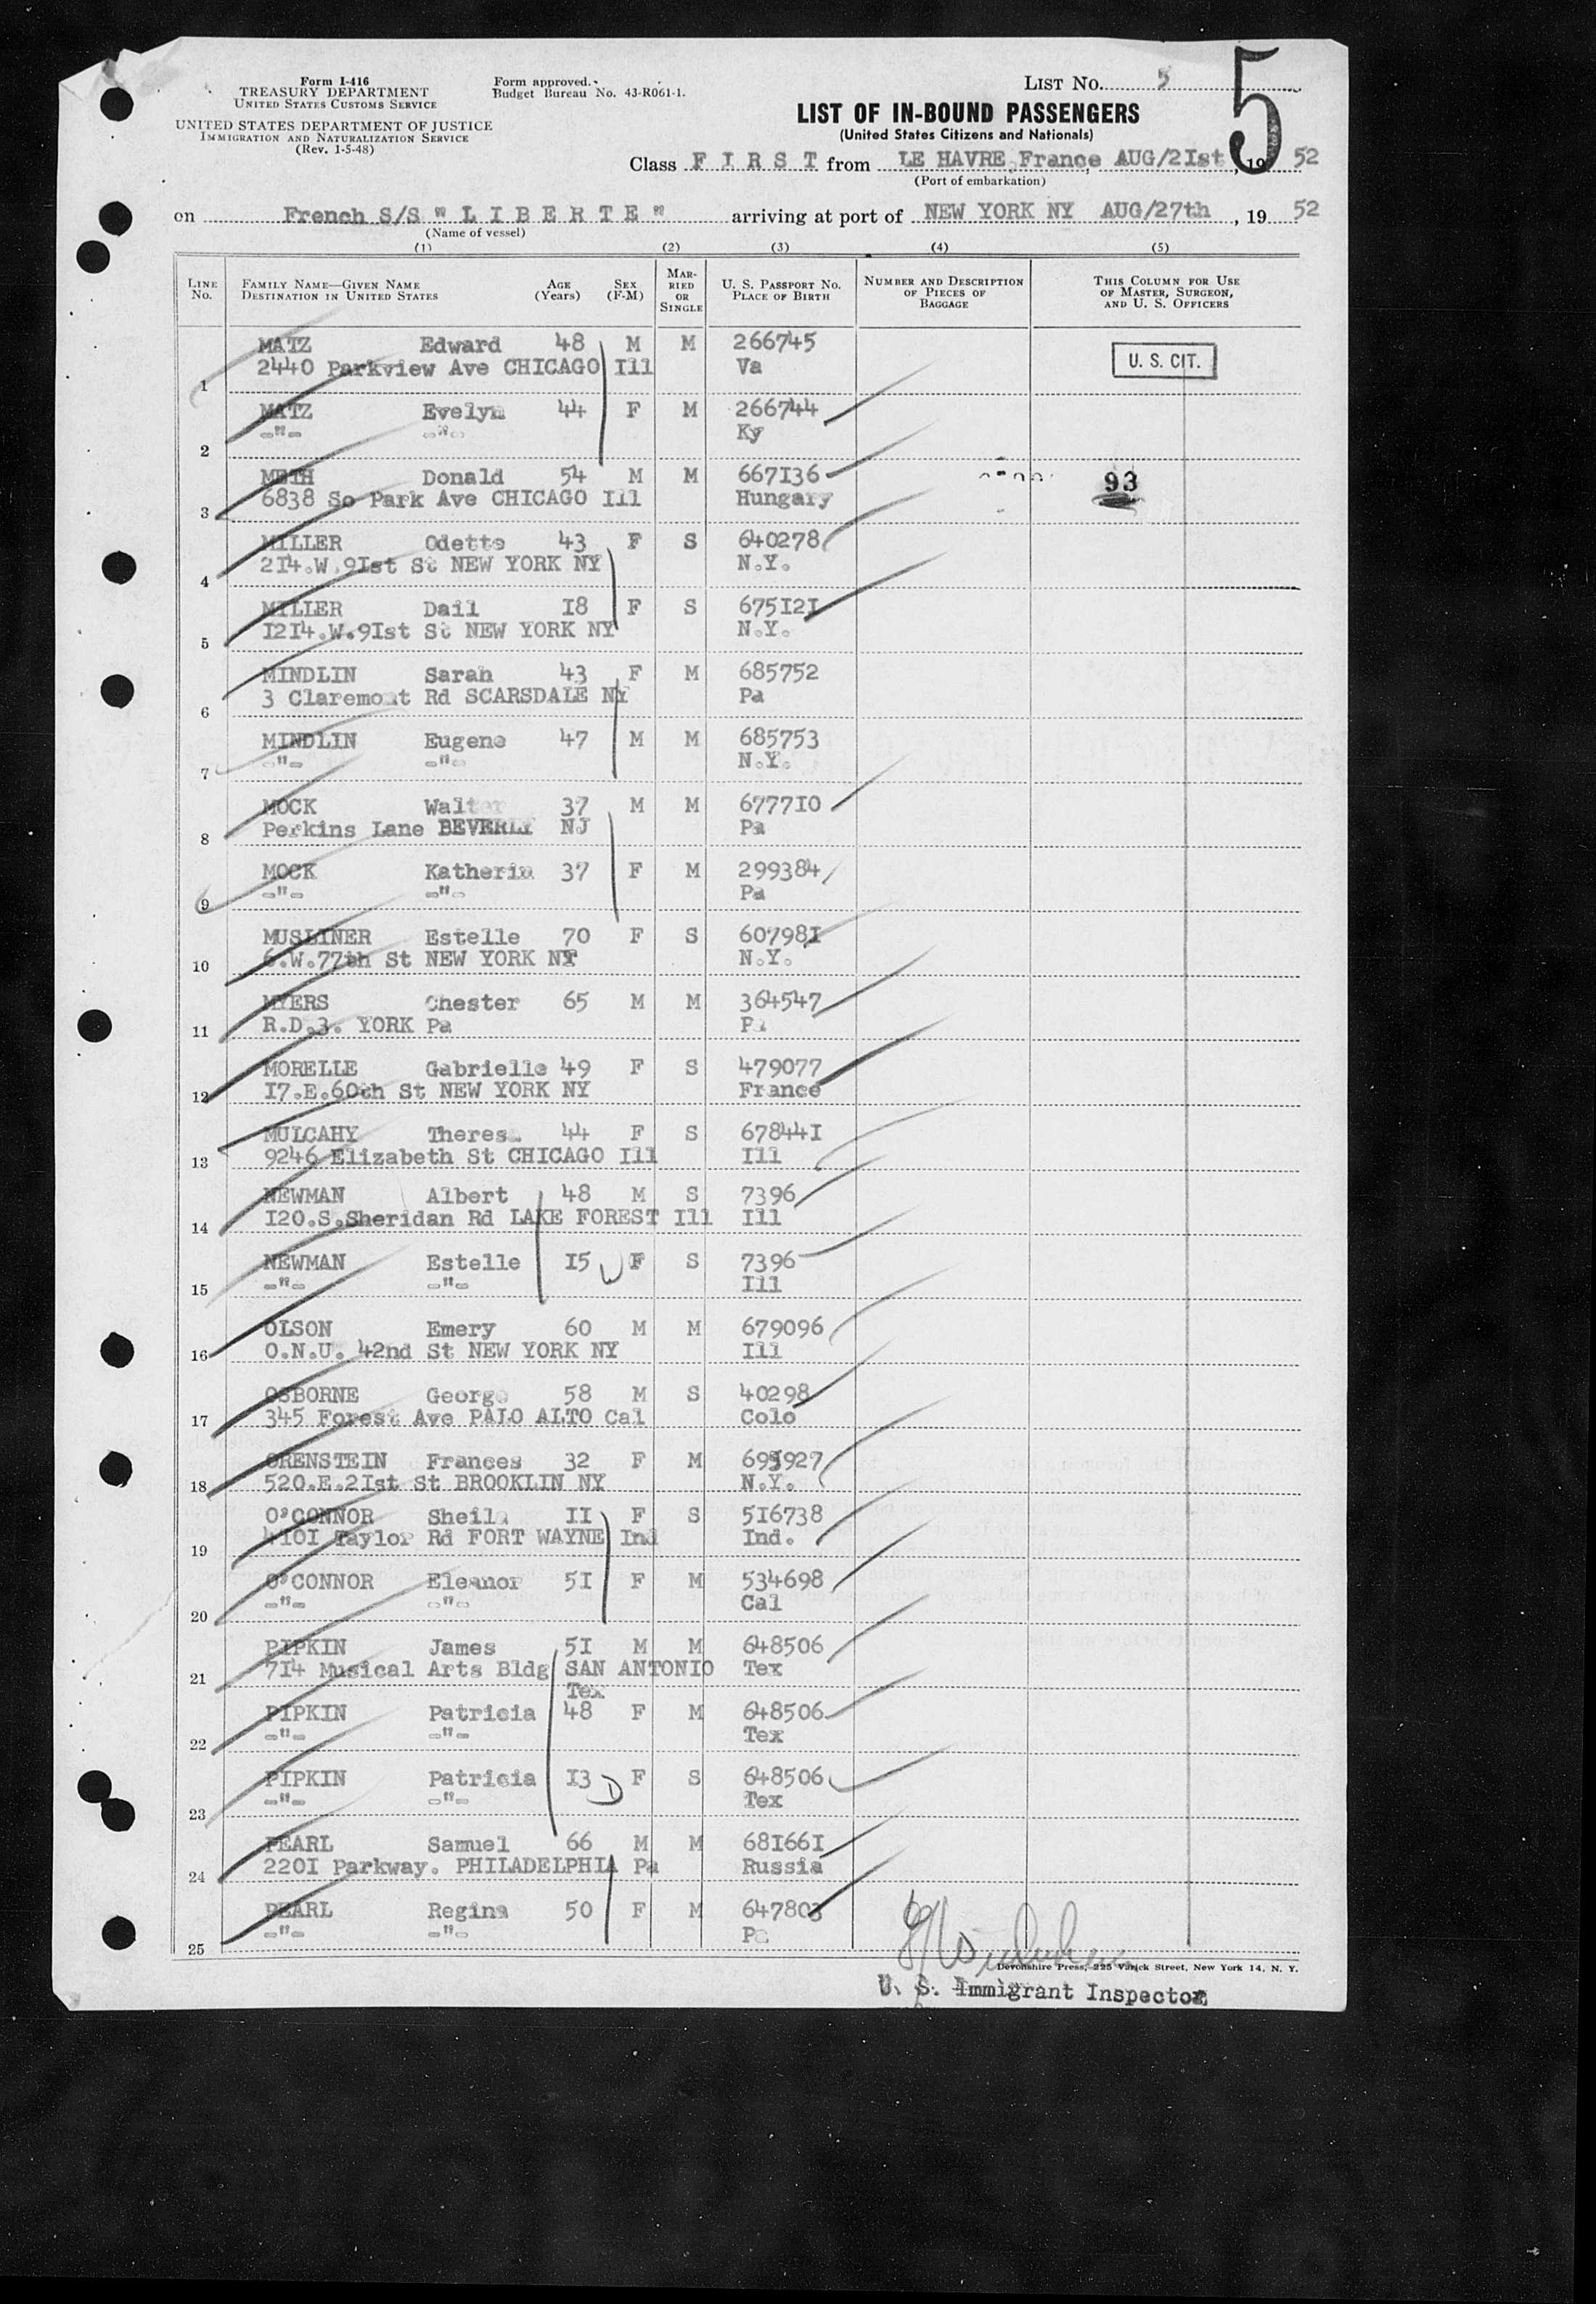 Form I-416
TREASURY DEPARTMENT
UNITED STATES CUSTOMS SERVICE
UNITED STATES DEPARTMENT OF JUSTICE
IMMIGRATION AND NATURALIZATION SERVICE
(Rev. 1-5-48)
Form approved.
Budget Bureau No. 43-R061-1.
LIST No. 5
5
LIST OF IN-BOUND PASSENGERS
(United States Citizens and Nationals)
Class F I R S T from LE HAVRE, France, AUG/2Ist, 19 52
(Port of embarkation)
on French S/S " L I B E R T E " arriving at port of NEW YORK NY AUG/27th, 19 52
(Name of vessel)
(1) (2) (3) (4) (5)
LINE No. FAMILY NAME—GIVEN NAME DESTINATION IN UNITED STATES AGE (Years) SEX (F-M) MARRIED OR SINGLE U. S. PASSPORT No. PLACE OF BIRTH NUMBER AND DESCRIPTION OF PIECES OF BAGGAGE THIS COLUMN FOR USE OF MASTER, SURGEON, AND U. S. OFFICERS
MATZ Edward 48 M M 266745
1 2440 Parkview Ave CHICAGO Ill Va U. S. CIT.
MATZ Evelyn 44 F M 266744
2 -"- -"- Ky
METH Donald 54 M M 667I36 93
3 6838 So Park Ave CHICAGO Ill Hungary
MILLER Odette 43 F S 640278
4 2I4.W.9Ist St NEW YORK NY N.Y.
MILLER Dail I8 F S 675I2I
5 I2I4.W.9Ist St NEW YORK NY N.Y.
MINDLIN Sarah 43 F M 685752
6 3 Claremont Rd SCARSDALE NY Pa
MINDLIN Eugene 47 M M 685753
7 -"- -"- N.Y.
MOCK Walter 37 M M 6777I0
8 Perkins Lane BEVERLY NJ Pa
MOCK Katherin 37 F M 299384
9 -"- -"- Pa
MUSLINER Estelle 70 F S 60798I
10 6.W.77th St NEW YORK NY N.Y.
MYERS Chester 65 M M 364547
11 R.D.3. YORK Pa Pa
MORELLE Gabrielle 49 F S 479077
12 I7.E.60th St NEW YORK NY France
MULCAHY Theresa 44 F S 67844I
13 9246 Elizabeth St CHICAGO Ill Ill
NEWMAN Albert 48 M S 7396
14 I20.S.Sheridan Rd LAKE FOREST Ill Ill
NEWMAN Estelle I5 F S 7396
15 -"- -"- Ill
OLSON Emery 60 M M 679096
16 O.N.U. 42nd St NEW YORK NY Ill
OSBORNE George 58 M S 40298
17 345 Forest Ave PALO ALTO Cal Colo
ORENSTEIN Frances 32 F M
18 520.E.2Ist St BROOKLIN NY N.Y.
O'CONNOR Sheila II F S 5I6738
19 4I0I Taylor Rd FORT WAYNE Ind Ind.
O'CONNOR Eleanor 5I F M 534698
20 -"- -"- Cal
PIPKIN James 5I M M 648506
21 7I4 Musical Arts Bldg SAN ANTONIO Tex
Tex
PIPKIN Patricia 48 F M 648506
22 -"- -"- Tex
PIPKIN Patricia I3 D F S 648506
23 -"- -"- Tex
PEARL Samuel 66 M M 68I66I
24 220I Parkway. PHILADELPHIA Pa Russia
PEARL Regina 50 F M 647803
25 -"- -"- Pa
Devonshire Press, 225 Varick Street, New York 14, N. Y.
U. S. Immigrant Inspector